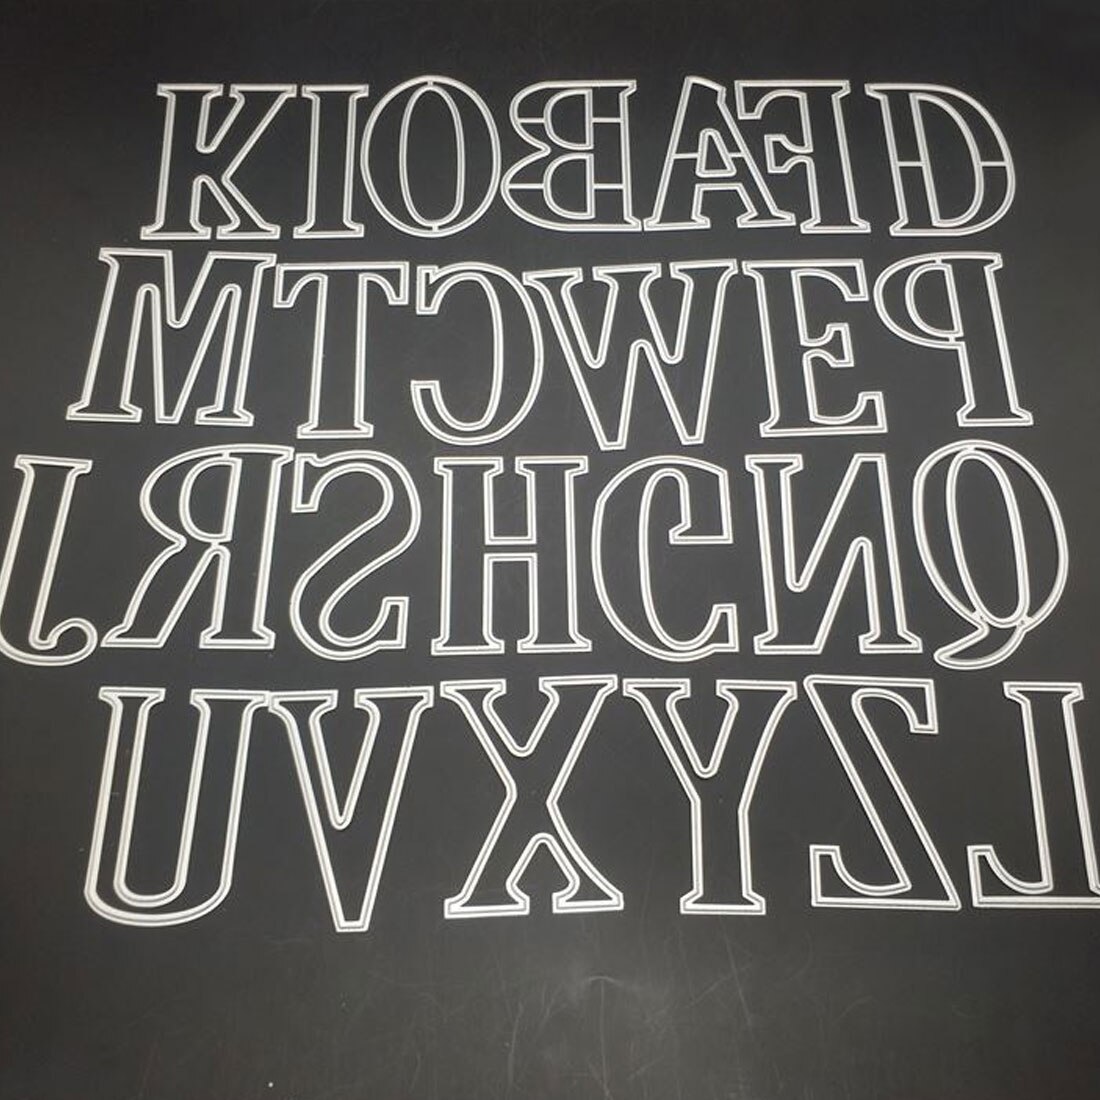 KIOBAFD
MTCWEP
JRSHGNQ
UVXYZL